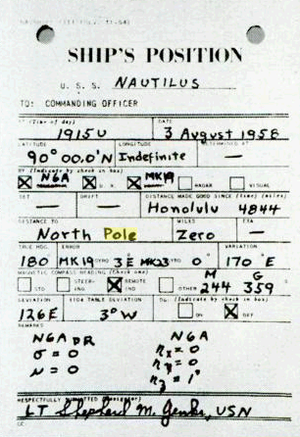 SHIP'S POSITION
U. S. S. NAUTILUS
TO: COMMANDING OFFICER
AT (Time of day) DATE
1915U 3 August 1958
LATITUDE LONGITUDE DETERMINED AT
90° 00.0'N Indefinite —
BY (Indicate by check in box)
N6A MK19
D. R. RADAR VISUAL
SET DRIFT DISTANCE MADE GOOD SINCE (time) (miles)
— — Honolulu 4844
DISTANCE TO MILES ETA
North Pole Zero —
TRUE HDG. ERROR VARIATION
180 MK19 GYRO 3E MK23 GYRO 0° 170°E
MAGNETIC COMPASS HEADING (Check one) M G
STD STEERING REMOTE IND OTHER 244 359
DEVIATION 1104 TABLE DEVIATION DG: (Indicate by check in box)
126E 3°W ON OFF
REMARKS
N6A DR N6A
σ = 0 nx = 0
= 0 ny = 0
nz = 1°
RESPECTFULLY SUBMITTED
LT Shepherd M. Jenks, USN
CC: